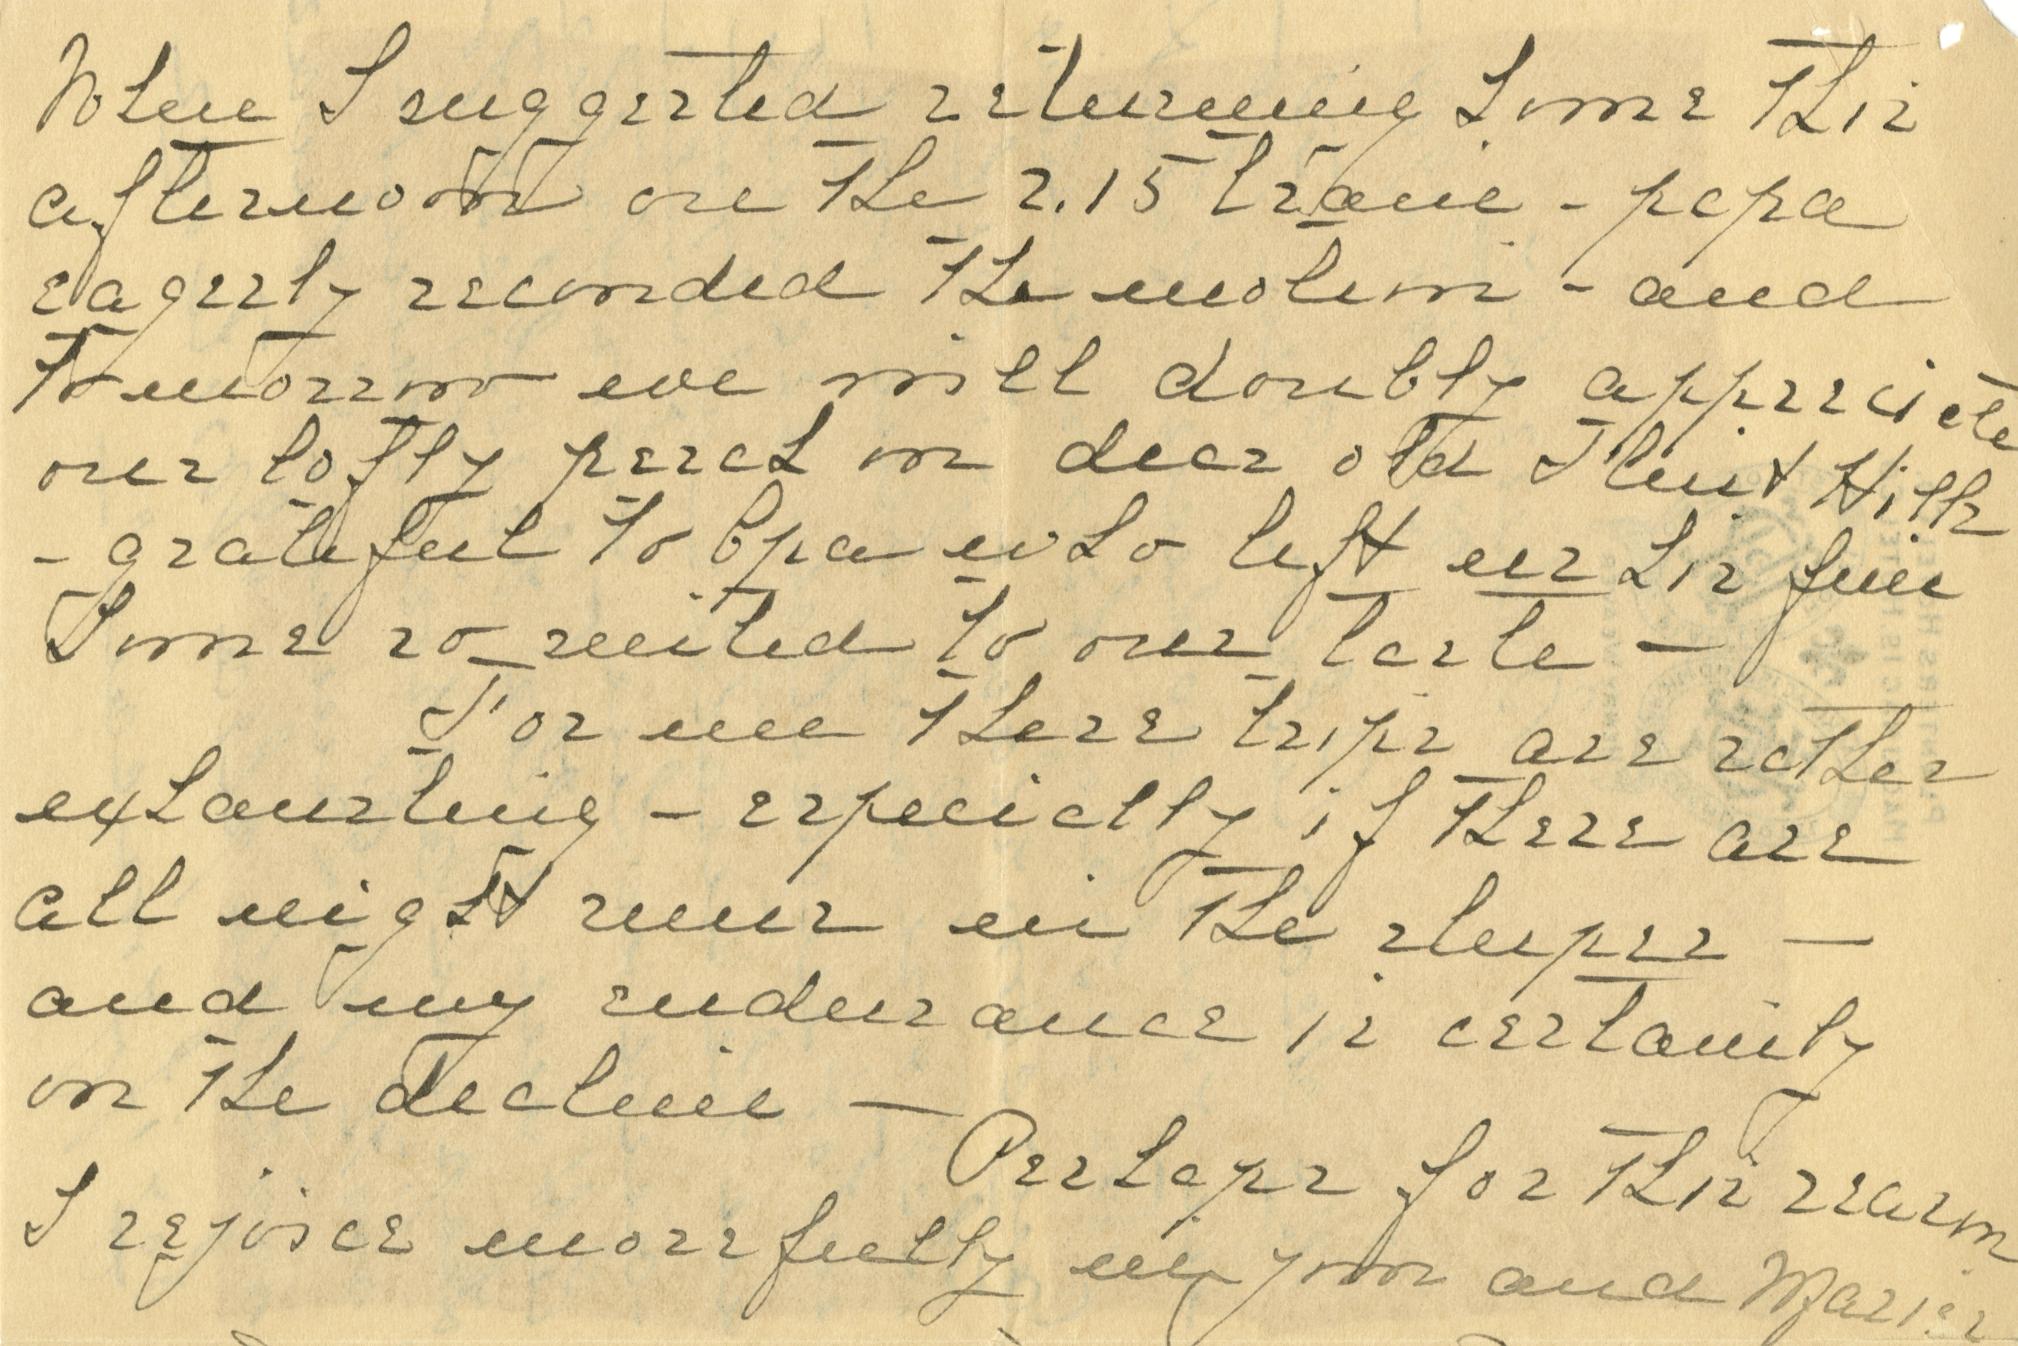 When I suggested returning home this
afternoon on the 2.15 train - papa
eagerly seconded the motion - and
tomorrow we will doubly appreciate
our lofty perch on dear old Flint Hill
- grateful to Gpa who left us his fine
home so suited to our taste —
For me these trips are rather
exhausting - especially if there are
all night runs in the sleeper —
and my endurance is certainly
on the decline —
Perhaps for this reason
I rejoice more fully in your and Marie's